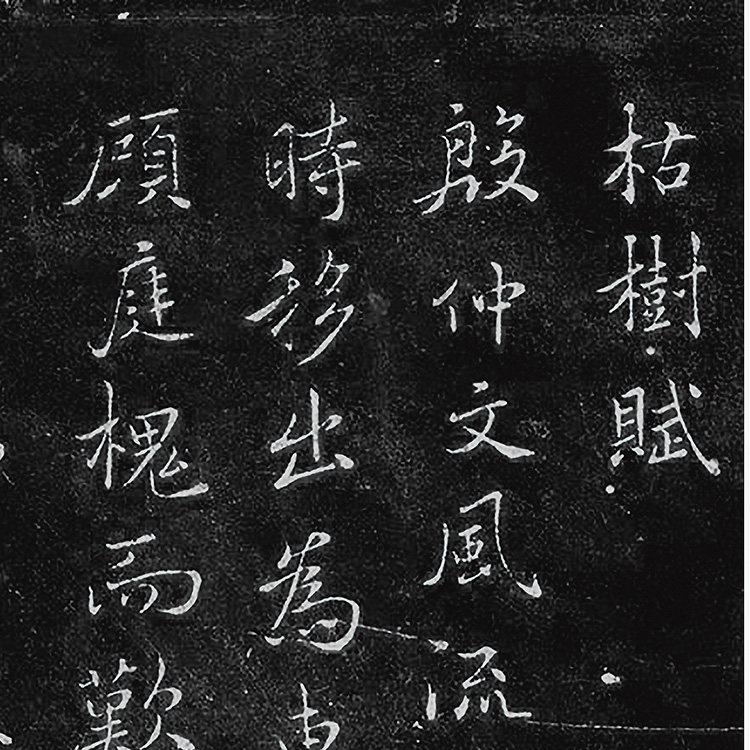 枯樹賦
殷仲文風流
時移出為東
顧庭槐而歎